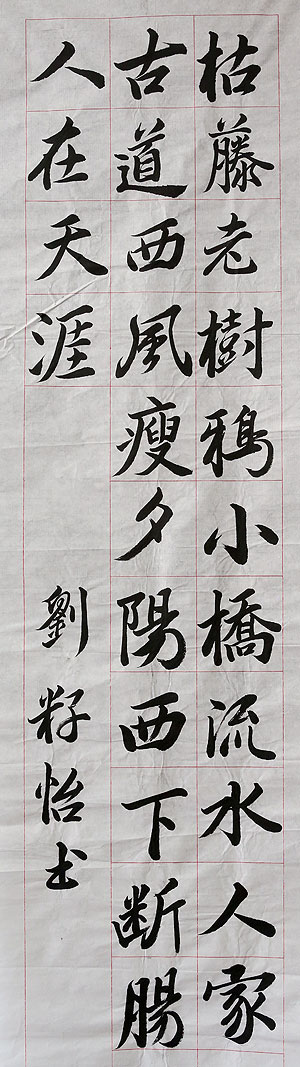 枯藤老樹鴉小橋流水人家
古道西風瘦夕陽西下断腸
人在天涯
劉籽怡书